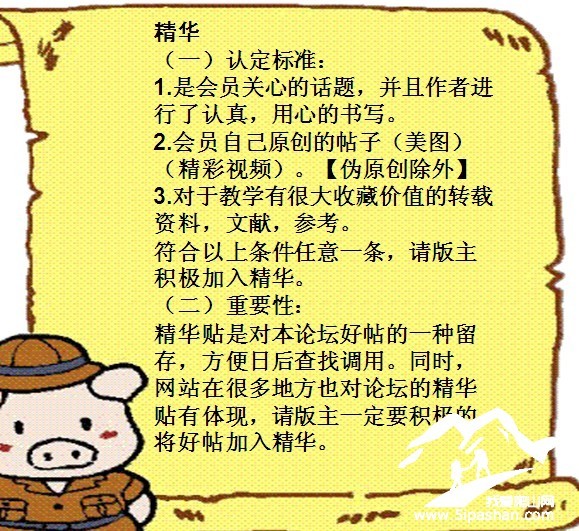 精华
（一）认定标准：
1.是会员关心的话题，并且作者进
行了认真，用心的书写。
2.会员自己原创的帖子（美图）
（精彩视频）。【伪原创除外】
3.对于教学有很大收藏价值的转载
资料，文献，参考。
符合以上条件任意一条，请版主
积极加入精华。
（二）重要性：
精华贴是对本论坛好帖的一种留
存，方便日后查找调用。同时，
网站在很多地方也对论坛的精华
贴有体现，请版主一定要积极的
将好帖加入精华。
www.5ipashan.com